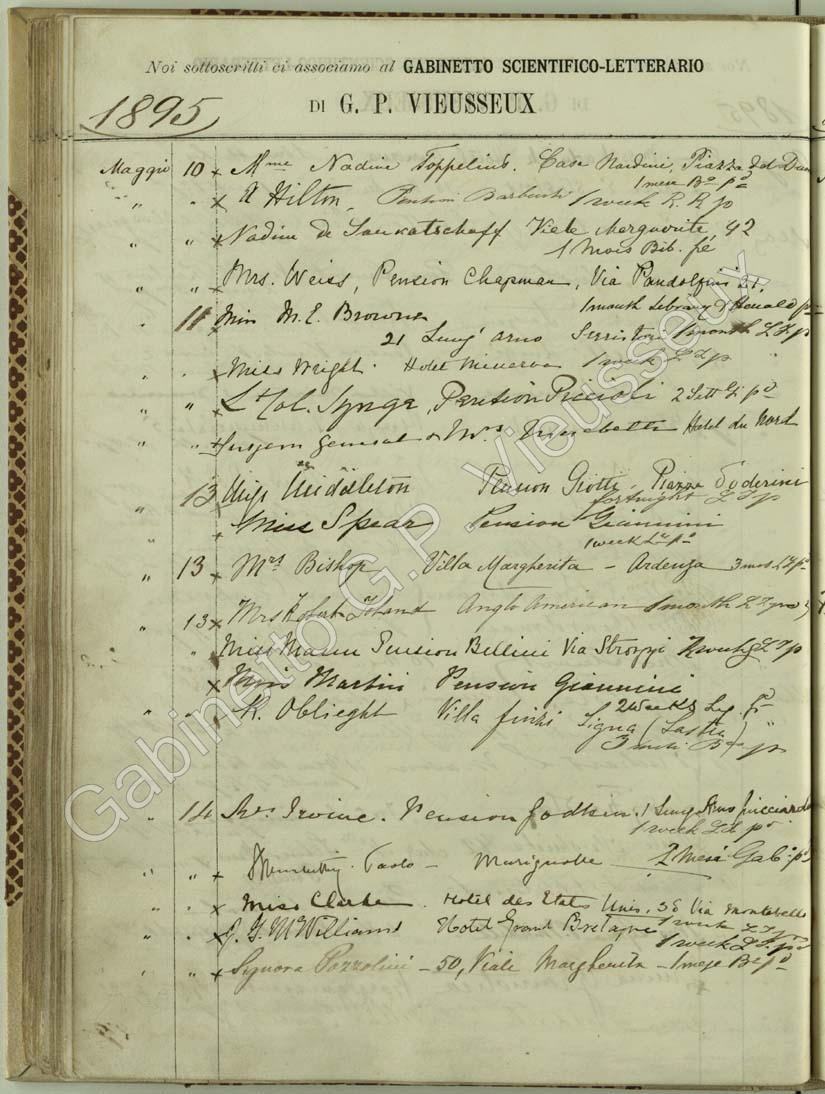 Noi sottoscritti ci associamo al GABINETTO SCIENTIFICO-LETTERARIO
DI G. P. VIEUSSEUX
1895
Maggio 10 x Mme Nadine Toppelius. Casa Nardini, Piazza del Duo
1 mese Bo pd
" " x A Hilton, Pension Barbensi 1 week R. R p
" " x Nadine de Viale Marguerite, 42
1 Mois Bib. pé
" " Mrs. Weiss, Pension Chapman, Via Pandolfini 21.
1 month Library & Herald p
" 11 x Miss M. E. Browne
21 Lung' Arno Serristori 1 month L L p
" " x Miss Wright. Hotel Minerva 1 week L L p
" " x Lt Col. Synge, Pension Piccioli 2 Sett pd
" " x Surgeon General & Mrs Hotel du Nord
13 Miss Middleton Pension Giotti - Piazza Soderini
fortnight L L p
x Miss Spear Pension Giannini
1 week Lr pd
" 13 x Mrs Bishop Villa Margherita - Ardenza 3 mos L pd
" 13 x Mrs Robert Anglo American 1 month L
" Miss Mason Pension Bellini Via Strozzi 2 weeks L L p
x Miss Martin Pension Giannini
2 weeks
" " x K. Oblieght Villa Signa (Lastra)
3 p
" 14 x Mrs Irvine. Pension Godkin. 1 Lung Arno Guicciardini
1 week Lib pd
" " x Paolo - Marignolle 2 Mesi Gab. pd
" " x Miss Clarke. Hotel des Etats Unis. 38 Via Montebello
1 week L L p
" " x J. G. McWilliams Hotel Grand Bretagne
1 week L L. pd
" " x Signora Pozzolini - 50, Viale Margherita - 1 mese Be pd
Gabinetto G.P. Vieusseux